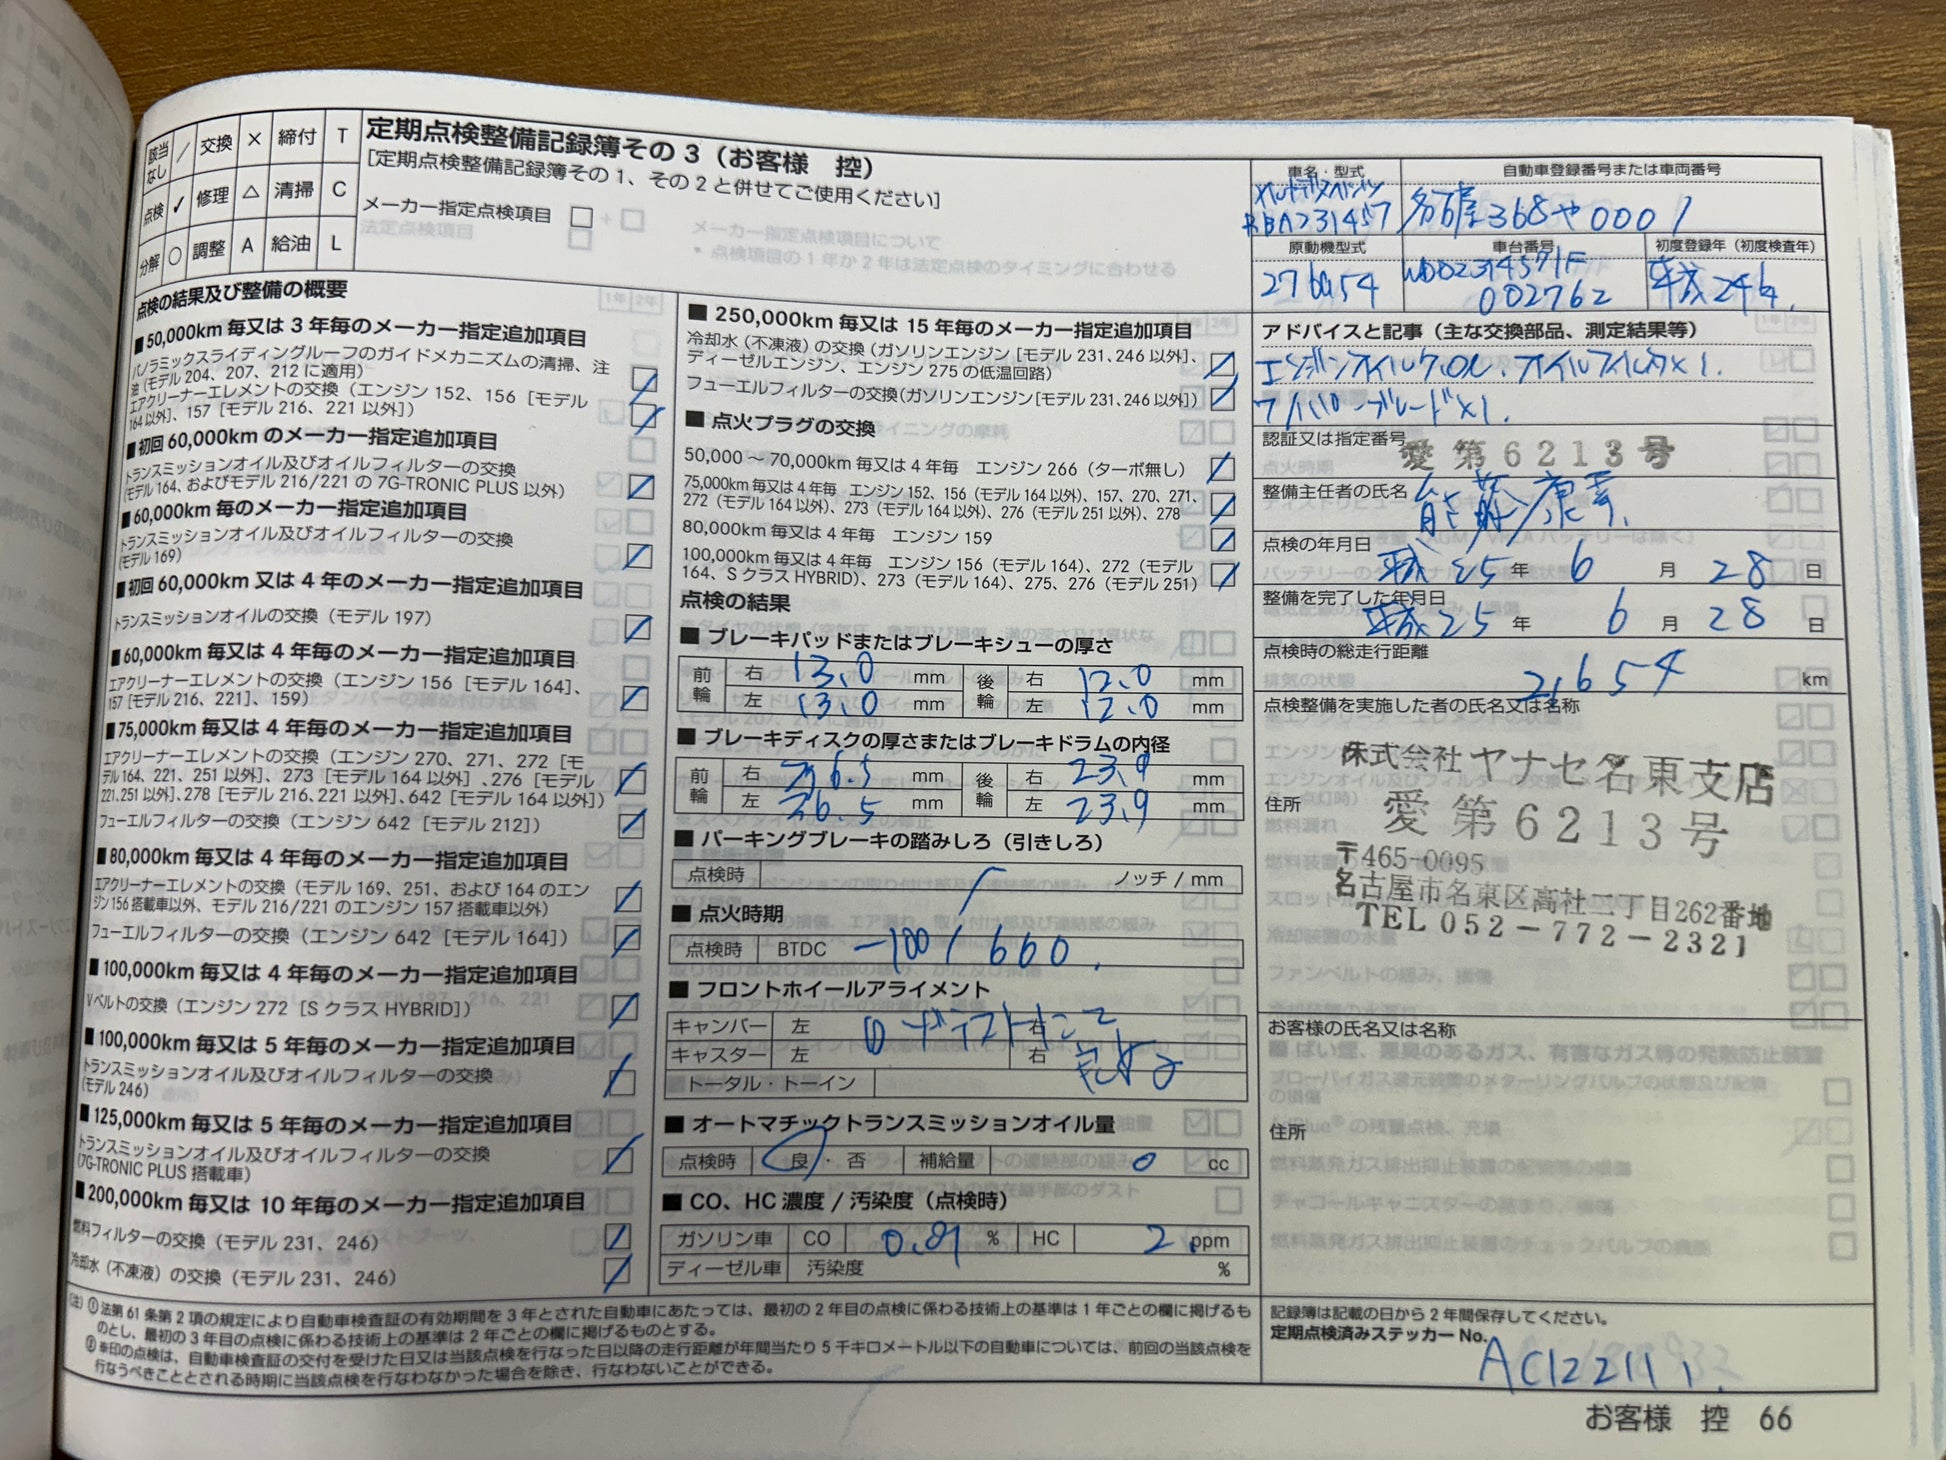 該当なし / 交換 × 締付 T
点検 ✓ 修理 △ 清掃 C
分解 ○ 調整 A 給油 L
定期点検整備記録簿その3（お客様 控）
[定期点検整備記録簿その1、その2と併せてご使用ください]
メーカー指定点検項目 □ + □
法定点検項目 □
メーカー指定点検項目について
* 点検項目の1年か2年は法定点検のタイミングに合わせる
車名・型式
RBA231457
自動車登録番号または車両番号
名古屋368や0001
原動機型式
車台番号
WDD2314571F
002762
初度登録年（初度検査年）
平成24年
点検の結果及び整備の概要
■50,000km毎又は3年毎のメーカー指定追加項目
パノラミックスライディングルーフのガイドメカニズムの清掃、注
油（モデル204、207、212に適用）
エアクリーナーエレメントの交換（エンジン152、156［モデル
164以外］、157［モデル216、221以外］）
■初回60,000kmのメーカー指定追加項目
トランスミッションオイル及びオイルフィルターの交換
（モデル164、およびモデル216/221の7G-TRONIC PLUS以外）
■60,000km毎のメーカー指定追加項目
トランスミッションオイル及びオイルフィルターの交換
（モデル169）
■初回60,000km又は4年のメーカー指定追加項目
トランスミッションオイルの交換（モデル197）
■60,000km毎又は4年毎のメーカー指定追加項目
エアクリーナーエレメントの交換（エンジン156［モデル164］、
157［モデル216、221］、159）
■75,000km毎又は4年毎のメーカー指定追加項目
エアクリーナーエレメントの交換（エンジン270、271、272［モ
デル164、221、251以外］、273［モデル164以外］、276［モデル
221、251以外］、278［モデル216、221以外］、642［モデル164以外］）
フューエルフィルターの交換（エンジン642［モデル212］）
■80,000km毎又は4年毎のメーカー指定追加項目
エアクリーナーエレメントの交換（モデル169、251、および164のエン
ジン156搭載車以外、モデル216/221のエンジン157搭載車以外）
フューエルフィルターの交換（エンジン642［モデル164］）
■100,000km毎又は4年毎のメーカー指定追加項目
Vベルトの交換（エンジン272［SクラスHYBRID］）
■100,000km毎又は5年毎のメーカー指定追加項目
トランスミッションオイル及びオイルフィルターの交換
（モデル246）
■125,000km毎又は5年毎のメーカー指定追加項目
トランスミッションオイル及びオイルフィルターの交換
（7G-TRONIC PLUS搭載車）
■200,000km毎又は10年毎のメーカー指定追加項目
燃料フィルターの交換（モデル231、246）
冷却水（不凍液）の交換（モデル231、246）
■ 250,000km毎又は15年毎のメーカー指定追加項目
冷却水（不凍液）の交換（ガソリンエンジン［モデル231、246以外］、
ディーゼルエンジン、エンジン275の低温回路）
フューエルフィルターの交換（ガソリンエンジン［モデル231、246以外］）
■ 点火プラグの交換
50,000～70,000km毎又は4年毎 エンジン266（ターボ無し）
75,000km毎又は4年毎 エンジン152、156（モデル164以外）、157、270、271、
272（モデル164以外）、273（モデル164以外）、276（モデル251以外）、278
80,000km毎又は4年毎 エンジン159
100,000km毎又は4年毎 エンジン156（モデル164）、272（モデル
164、SクラスHYBRID）、273（モデル164）、275、276（モデル251）
点検の結果
■ ブレーキパッドまたはブレーキシューの厚さ
前輪 右 13.0 mm 後輪 右 12.0 mm
左 13.0 mm 左 12.0 mm
■ ブレーキディスクの厚さまたはブレーキドラムの内径
前輪 右 36.5 mm 後輪 右 23.9 mm
左 36.5 mm 左 23.9 mm
■ パーキングブレーキの踏みしろ（引きしろ）
点検時 / ノッチ / mm
■ 点火時期
点検時 BTDC -100 / 660.
■ フロントホイールアライメント
キャンバー 左 右
キャスター 左 右
トータル・トーイン
ロードテストにて
■ オートマチックトランスミッションオイル量
点検時 良・否 補給量 0 cc
■ CO、HC濃度 / 汚染度（点検時）
ガソリン車 CO 0.01 % HC 2 ppm
ディーゼル車 汚染度 %
アドバイスと記事（主な交換部品、測定結果等）
オイルフィルタ×1.
ワイパーブレード×1.
認証又は指定番号
愛第6213号
整備主任者の氏名
点検の年月日
平成25年 6月 28日
整備を完了した年月日
平成25年 6月 28日
点検時の総走行距離
2,654 km
点検整備を実施した者の氏名又は名称
株式会社ヤナセ名東支店
愛第6213号
住所
〒465-0095
名古屋市名東区高社二丁目262番地
TEL 052-772-2321
お客様の氏名又は名称
住所
(注) ① 法第61条第2項の規定により自動車検査証の有効期間を3年とされた自動車にあたっては、最初の2年目の点検に係わる技術上の基準は1年ごとの欄に掲げるも
のとし、最初の3年目の点検に係わる技術上の基準は2年ごとの欄に掲げるものとする。
② ※印の点検は、自動車検査証の交付を受けた日又は当該点検を行なった日以降の走行距離が年間当たり5千キロメートル以下の自動車については、前回の当該点検を
行なうべきこととされる時期に当該点検を行なわなかった場合を除き、行なわないことができる。
記録簿は記載の日から2年間保存してください。
定期点検済みステッカーNo.
AC122111.
お客様 控 66